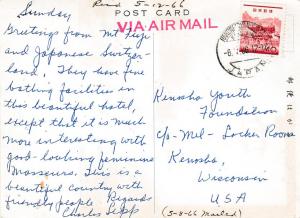 Sunday
Rec'd 5-12-66
POST CARD
VIA AIR MAIL
Greetings from Mt Fuji
and Japanese Switzer-
land. They have fine
bathing facilities in
this beautiful hotel,
except that it is much
more interesting with
good-looking feminine
Masseurs. This is a
beautiful country with
friendly people. Regards
Charles Sepp
JAPAN
郵便はがき
Kenosha Youth
Foundation
c/o Mel-Locker Rooms
Kenosha,
Wisconsin
U.S.A
(5-8-66 Mailed)